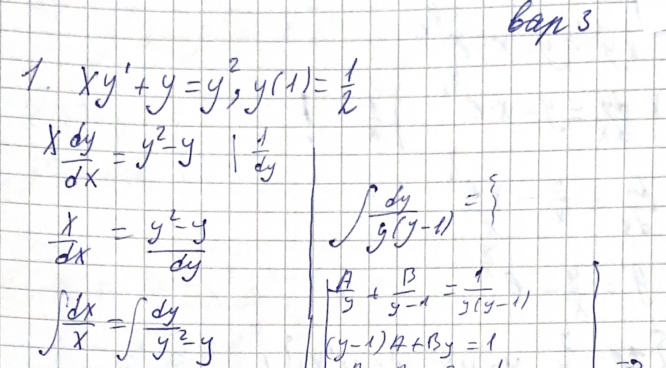 вар 3
1. xy' + y = y², y(1) = 1/2
x dy/dx = y² - y | 1/dy
x/dx = (y² - y)/dy
∫ dx/x = ∫ dy/(y² - y)
∫ dy/(y(y-1)) = {
A/y + B/(y-1) = 1/(y(y-1))
(y-1)A + By = 1